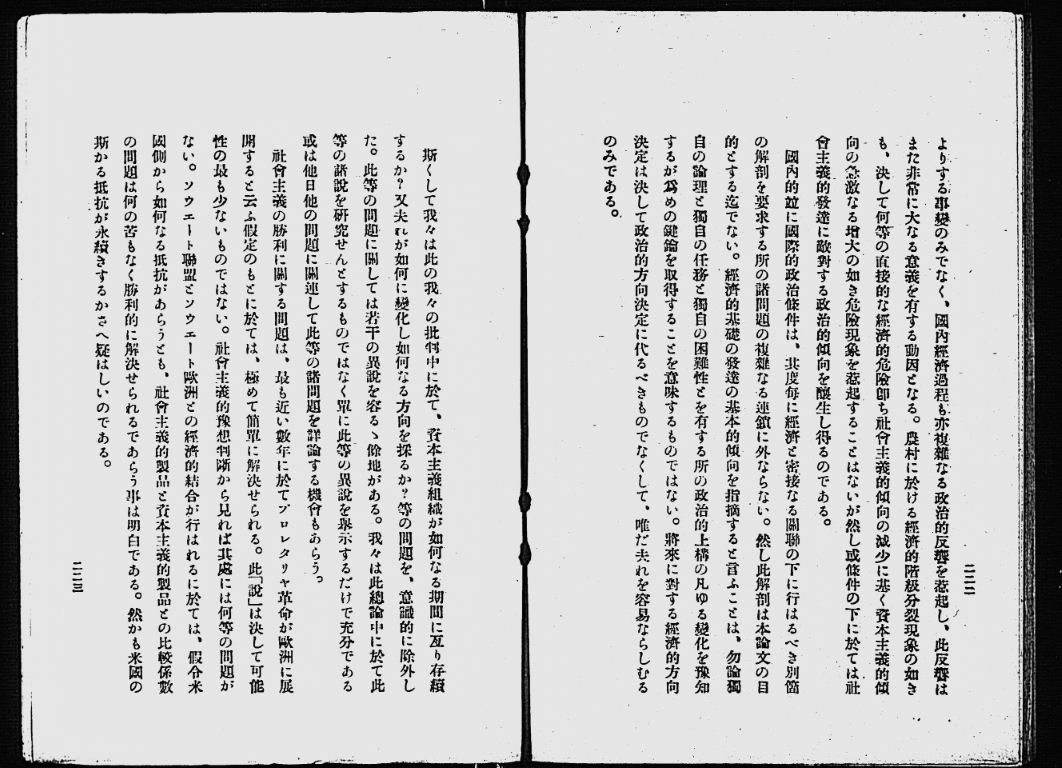 よりする事變のみでなく、國內經濟過程も亦複雜なる政治的反響を惹起し、此反響は
また非常に大なる意義を有する動因となる。農村に於ける經濟的階級分裂現象の如き
も、決して何等の直接的な經濟的危險卽ち社會主義的傾向の減少に基く資本主義的傾
向の急激なる增大の如き危險現象を惹起することはないが然し或條件の下に於ては社
會主義的發達に敵對する政治的傾向を釀生し得るのである。
國內的竝に國際的政治條件は、其度每に經濟と密接なる關聯の下に行はるべき別箇
の解剖を要求する所の諸問題の複雜なる連鎖に外ならない。然し此解剖は本論文の目
的とする迄でない。經濟的基礎の發達の基本的傾向を指摘すると言ふことは、勿論獨
自の論理と獨自の任務と獨自の困難性とを有する所の政治的上構の凡ゆる變化を豫知
するが爲めの鍵鑰を取得することを意味するものではない。將來に對する經濟的方向
決定は決して政治的方向決定に代るべきものでなくして、唯だ夫れを容易ならしむる
のみである。
二二二
斯くして我々は此の我々の批判中に於て、資本主義組織が如何なる期間に亙り存續
するか?又夫れが如何に變化し如何なる方向を採るか?等の問題を、意識的に除外し
た。此等の問題に關しては若干の異說を容るゝ餘地がある。我々は此總論中に於て此
等の諸說を硏究せんとするものではなく單に此等の異說を擧示するだけで充分である
或は他日他の問題に關連して此等の諸問題を詳論する機會もあらう。
社會主義の勝利に關する問題は、最も近い數年に於てプロレタリヤ革命が歐洲に展
開すると云ふ假定のもとに於ては、極めて簡單に解決せられる。此「說」は決して可能
性の最も少ないものではない。社會主義的豫想判斷から見れば其處には何等の問題が
ない。ソウエート聯盟とソウエート歐洲との經濟的結合が行はれるに於ては、假令米
國側から如何なる抵抗があらうとも、社會主義的製品と資本主義的製品との比較係數
の問題は何の苦もなく勝利的に解決せられるであらう事は明白である。然かも米國の
斯かる抵抗が永續きするかさへ疑はしいのである。
二二三